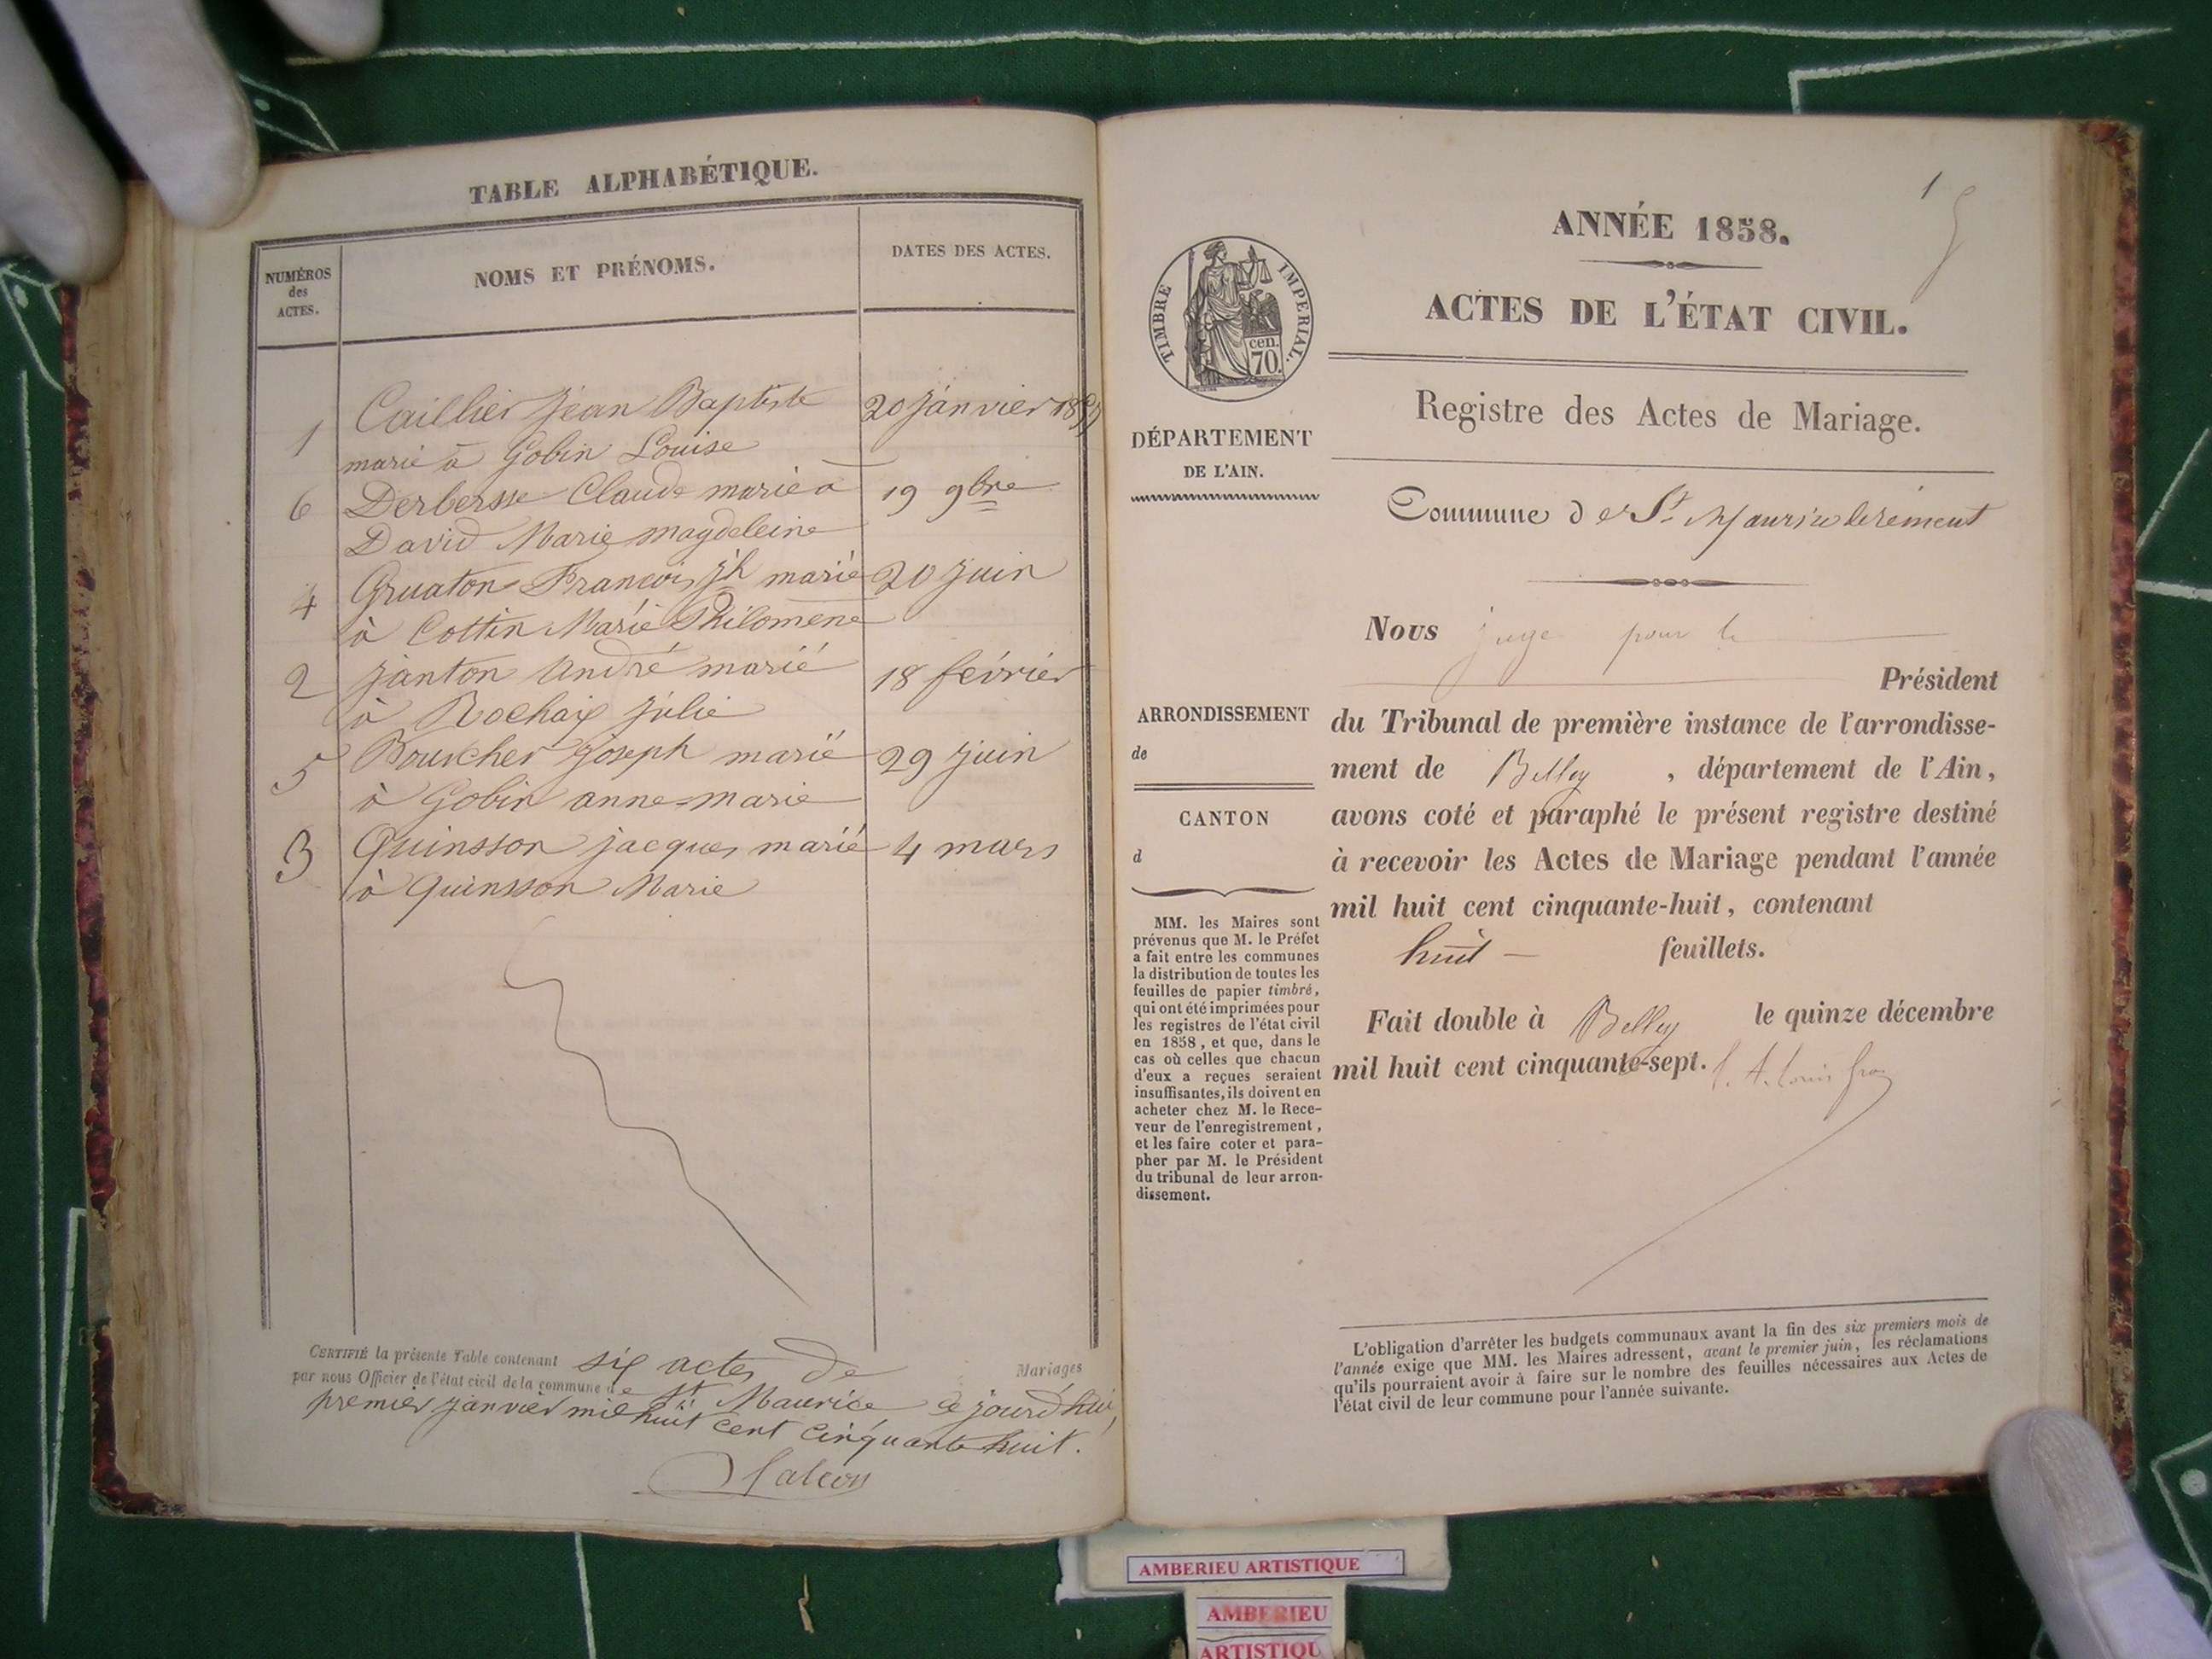 TABLE ALPHABÉTIQUE.
NUMÉROS
des
ACTES.
NOMS ET PRÉNOMS.
DATES DES ACTES.
1 Caillier Jean Baptiste 20 janvier 1857
marié à Gobin Louise
6 Derbersse Claude marié à 19 9bre
David Marie magdeleine
4 Gruaton François jh marié 20 juin
à Cottin Marie Philomène
2 Janton André marié 18 février
à Rochaix Julie
5 Bourcher Joseph marié 29 juin
à Gobin anne-marie
3 Quinsson jacques marié 4 mars
à Quinsson Marie
CERTIFIÉ la présente Table contenant six actes de Mariages
par nous Officier de l'état civil de la commune de St Maurice ce jourd'hui
premier janvier mil huit cent cinquante huit.
Falcon
1
ANNÉE 1858.
ACTES DE L'ÉTAT CIVIL.
TIMBRE IMPÉRIAL.
cen.
70.
DÉPARTEMENT
DE L'AIN.
Registre des Actes de Mariage.
Commune de St Maurice
Nous juge pour le
Président
du Tribunal de première instance de l'arrondisse-
ment de Belley , département de l'Ain,
avons coté et paraphé le présent registre destiné
à recevoir les Actes de Mariage pendant l'année
mil huit cent cinquante-huit, contenant
huit — feuillets.
Fait double à Belley le quinze décembre
mil huit cent cinquante-sept.
ARRONDISSEMENT
de
CANTON
d
MM. les Maires sont
prévenus que M. le Préfet
a fait entre les communes
la distribution de toutes les
feuilles de papier timbré,
qui ont été imprimées pour
les registres de l'état civil
en 1858, et que, dans le
cas où celles que chacun
d'eux a reçues seraient
insuffisantes, ils doivent en
acheter chez M. le Rece-
veur de l'enregistrement,
et les faire coter et para-
pher par M. le Président
du tribunal de leur arron-
dissement.
L'obligation d'arrêter les budgets communaux avant la fin des six premiers mois de
l'année exige que MM. les Maires adressent, avant le premier juin, les réclamations
qu'ils pourraient avoir à faire sur le nombre des feuilles nécessaires aux Actes de
l'état civil de leur commune pour l'année suivante.
AMBERIEU ARTISTIQUE
AMBERIEU
ARTISTIQU